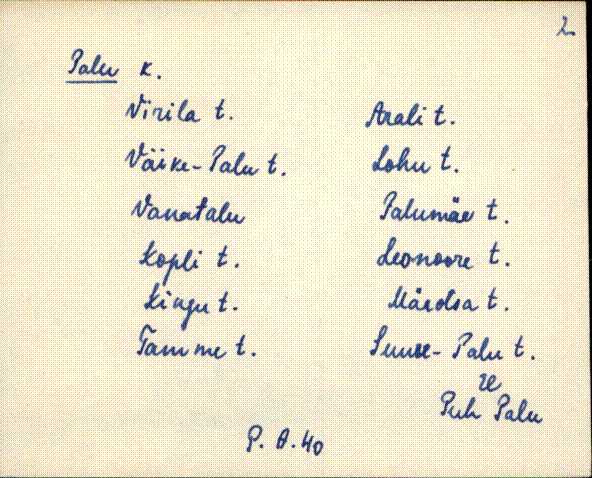 2.
Palu k.
Virila t.
Väike-Palu t.
Vanatalu
Kopli t.
Kingu t.
Tamme t.
Arali t.
Lohu t.
Palumäe t.
Leonoore t.
Mäeotsa t.
Suure-Palu t.
Puh Palu
P. A. 40